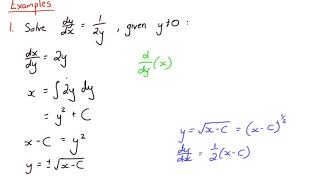 Examples
1. Solve dy/dx = 1/2y , given y≠0 :
dx/dy = 2y
d/dy (x)
x = ∫ 2y dy
= y² + C
x - C = y²
y = ± √x-C
y = √x-C = (x-C)^½
dy/dx = 1/2 (x-C)